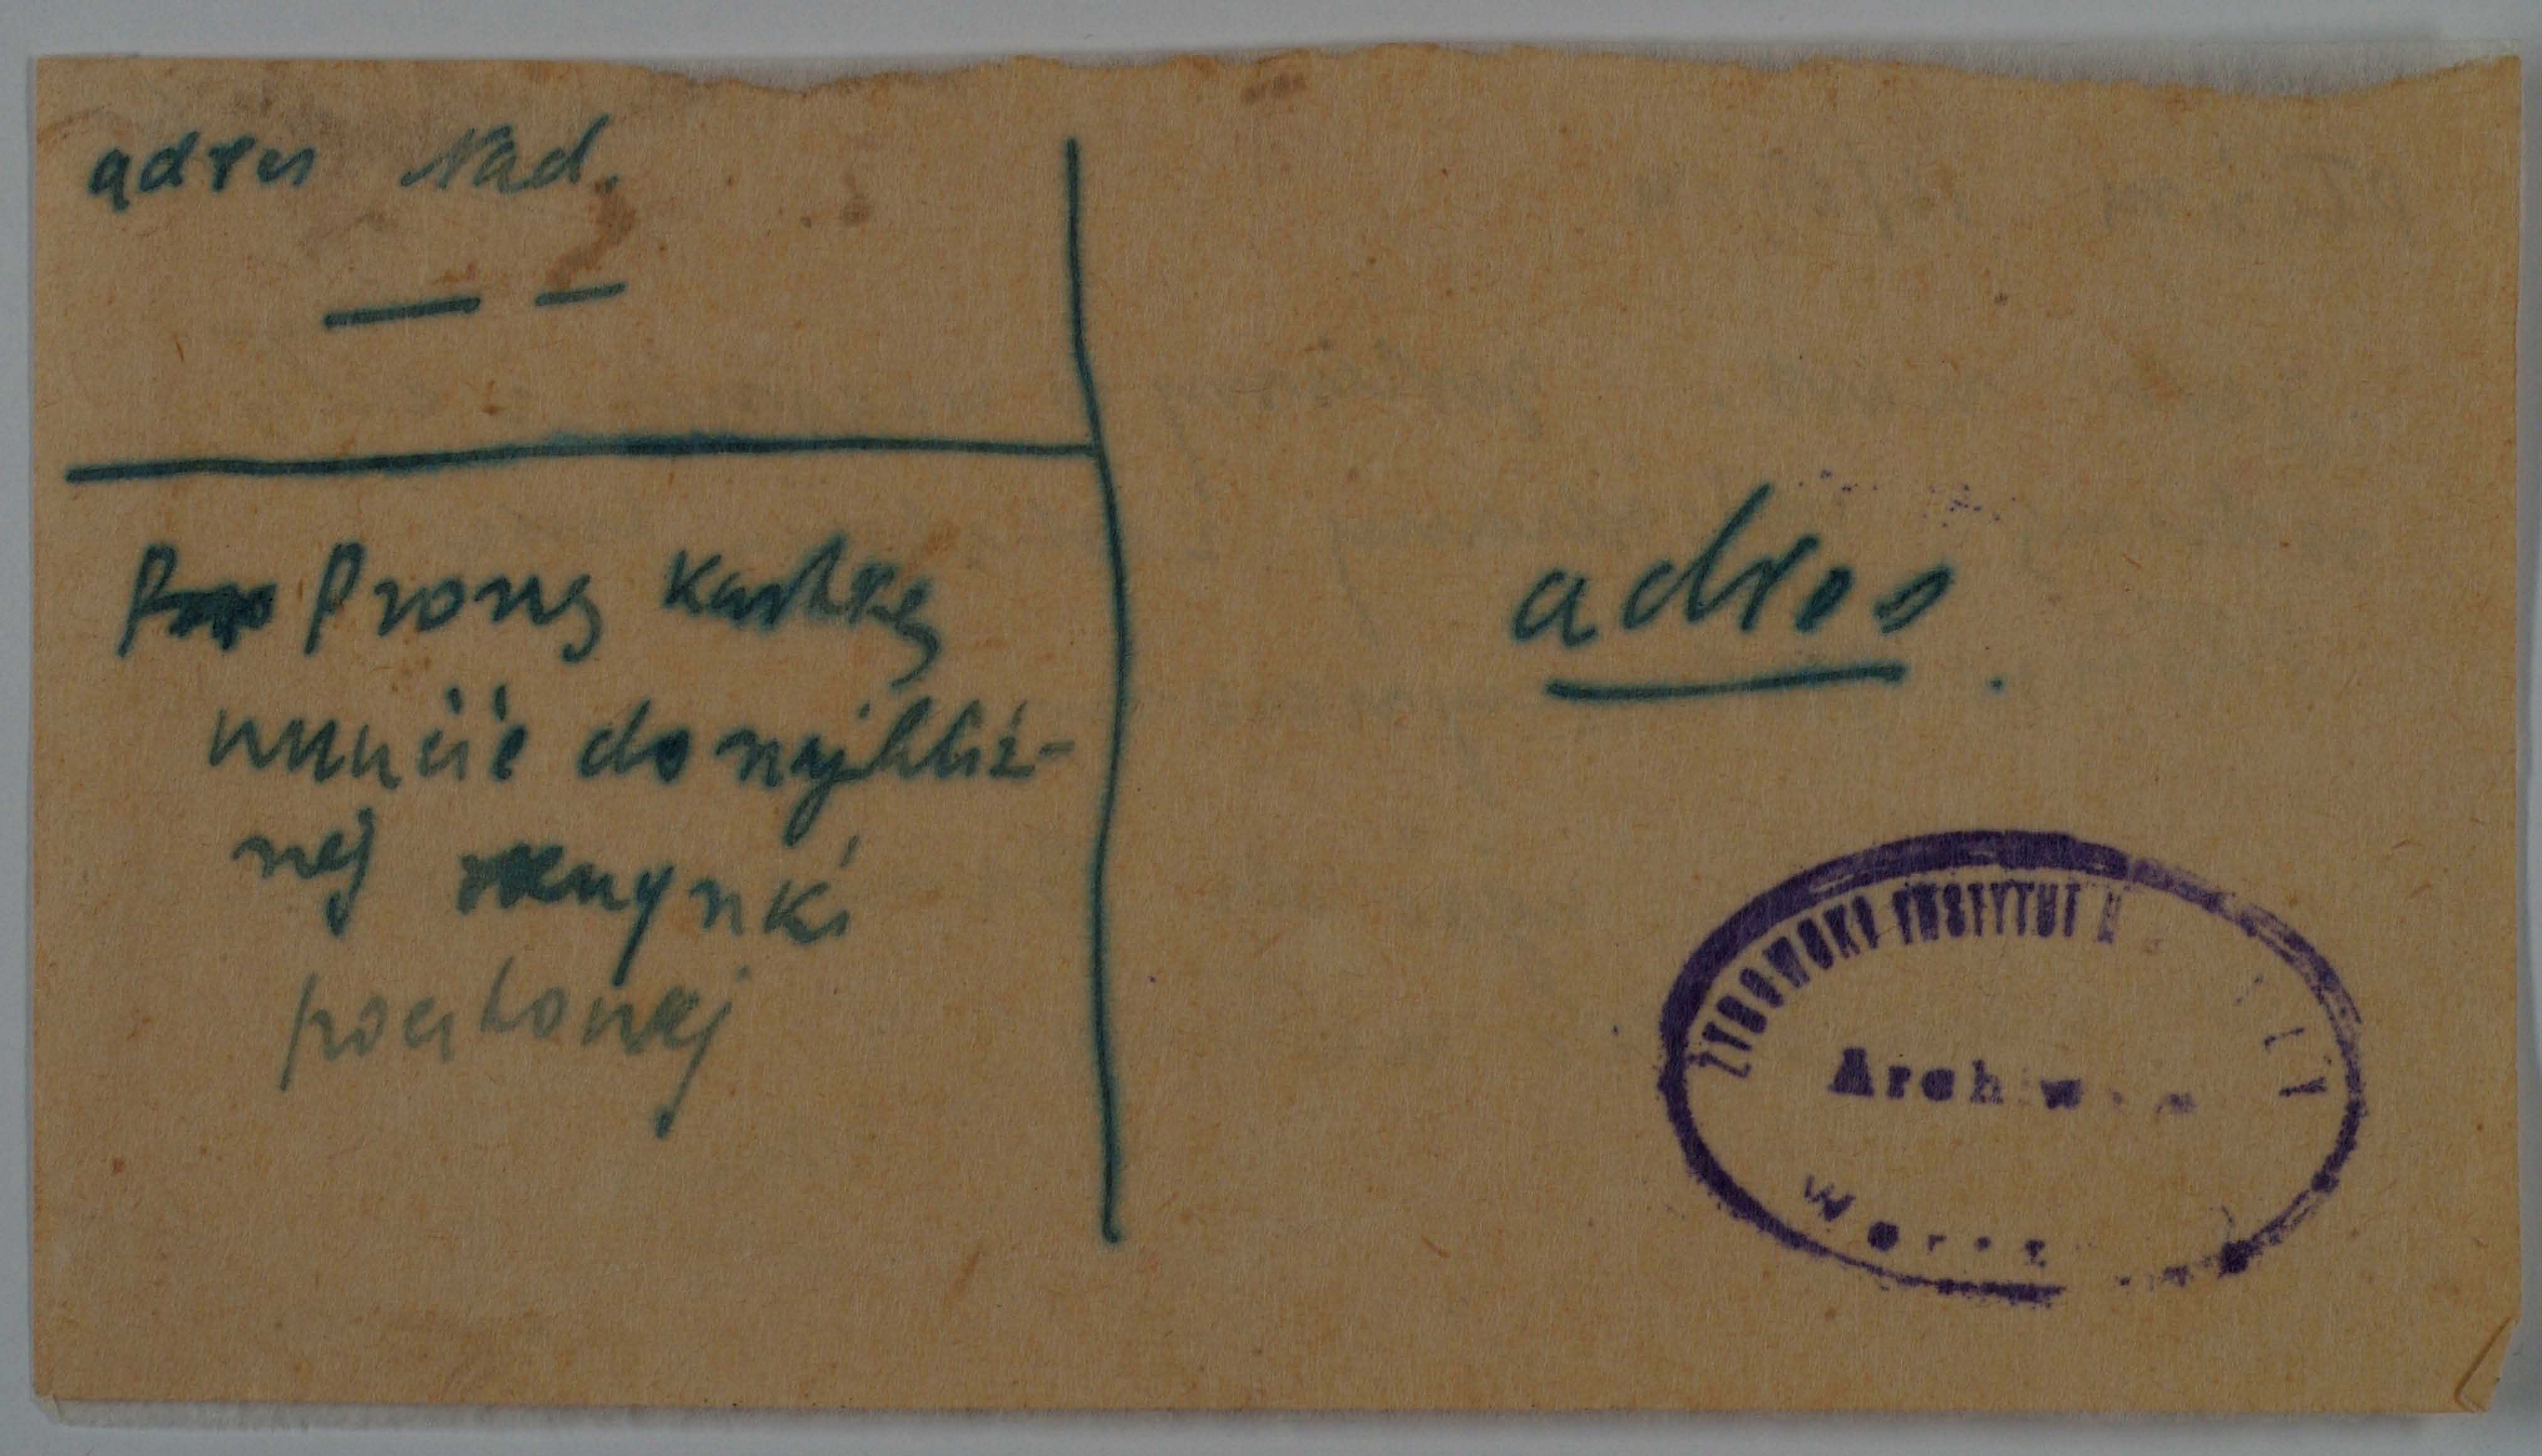 adres Nad.
Proszę kartkę
wrucić do najbliż-
nej skrzynki
pocztowej
adres
ŻYDOWSKI INSTYTUT H
Archiw